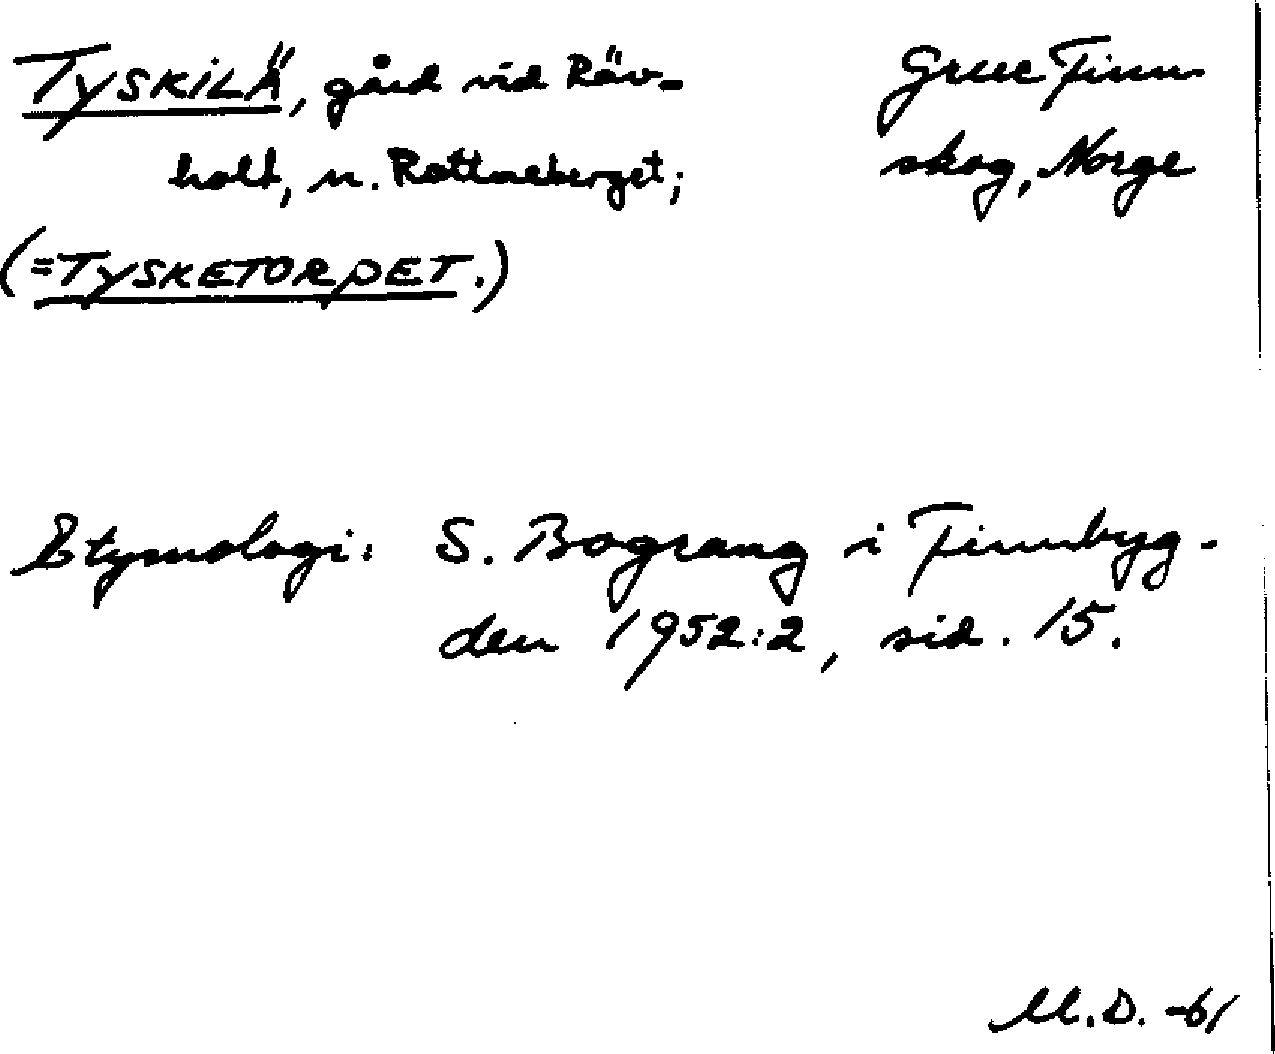 TYSKILÄ, gård vid Räv-
holt, n. Rottneberget;
(=TYSKETORPET.)
Grue Finn-
skog, Norge
Etymologi: S. Bograng i Finnbyg-
den 1952:2, sid. 15.
M.D. -61